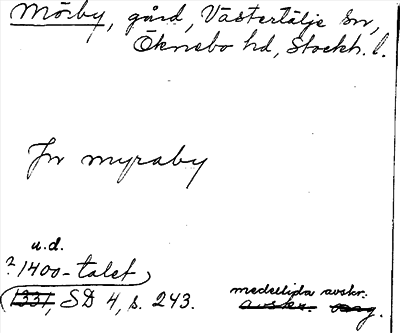 Mörby, gård, Västertälje sn,
Öknebo hd, Stockh. l.
Jn myraby
u.d.
? 1400-talet
(1331, SD 4, s. 243.
medeltida avskr.
avskr. orig.